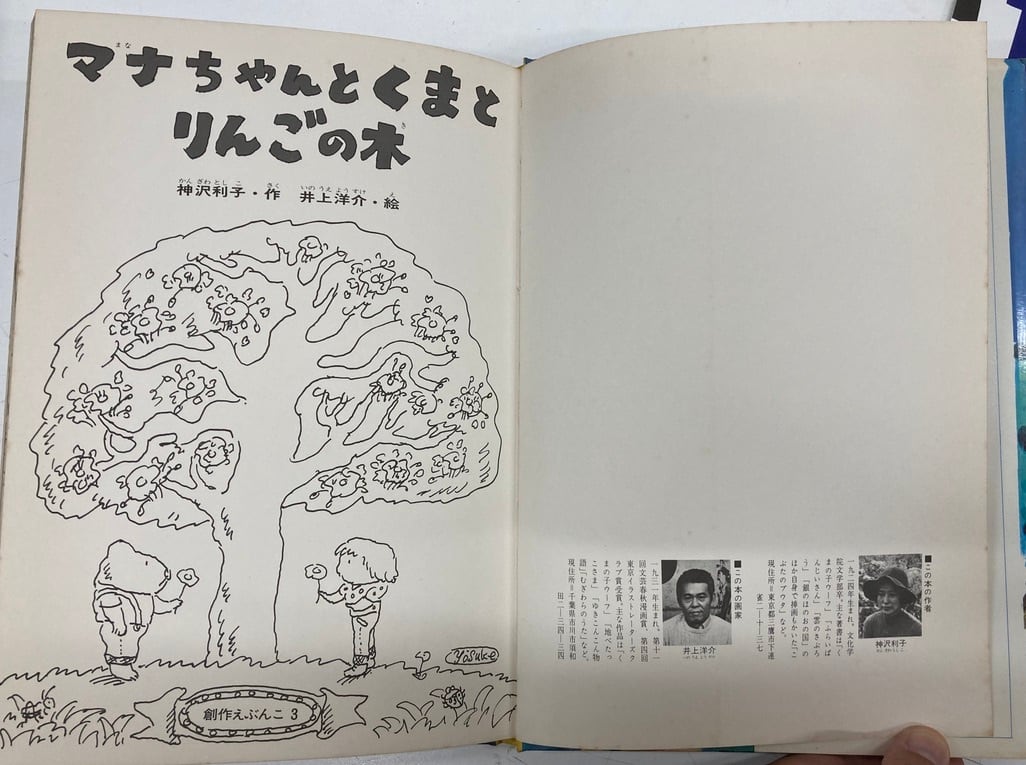 まな
マナちゃんとくまと
き
りんごの木
かんざわとしこ さく いのうえようすけ え
神沢利子・作 井上洋介・絵
Yosuke
創作えぶんこ 3
■この本の作者
神沢利子
かんざわとしこ
一九二四年生まれ。文化学
院文学部卒。主な著書は「く
まの子ウーフ」「ふらいぱ
んじいさん」「雲のさぶろ
う」「銀のほのおの国」の
ほか自身で挿画もかいた「こ
ぶたのブウタ」など。
現住所=東京都三鷹市下連
雀二―十―三七
■この本の画家
井上洋介
いのうえようすけ
一九三一年生まれ。第十一
回文芸春秋漫画賞、第四回
東京イラストレーターズク
ラブ賞受賞。主な作品は「く
まの子ウーフ」「地べたっ
こさま」「ゆきこんこん物
語」「むぎわらのうた」など。
現住所=千葉県市川市須和
田二―三四―三四